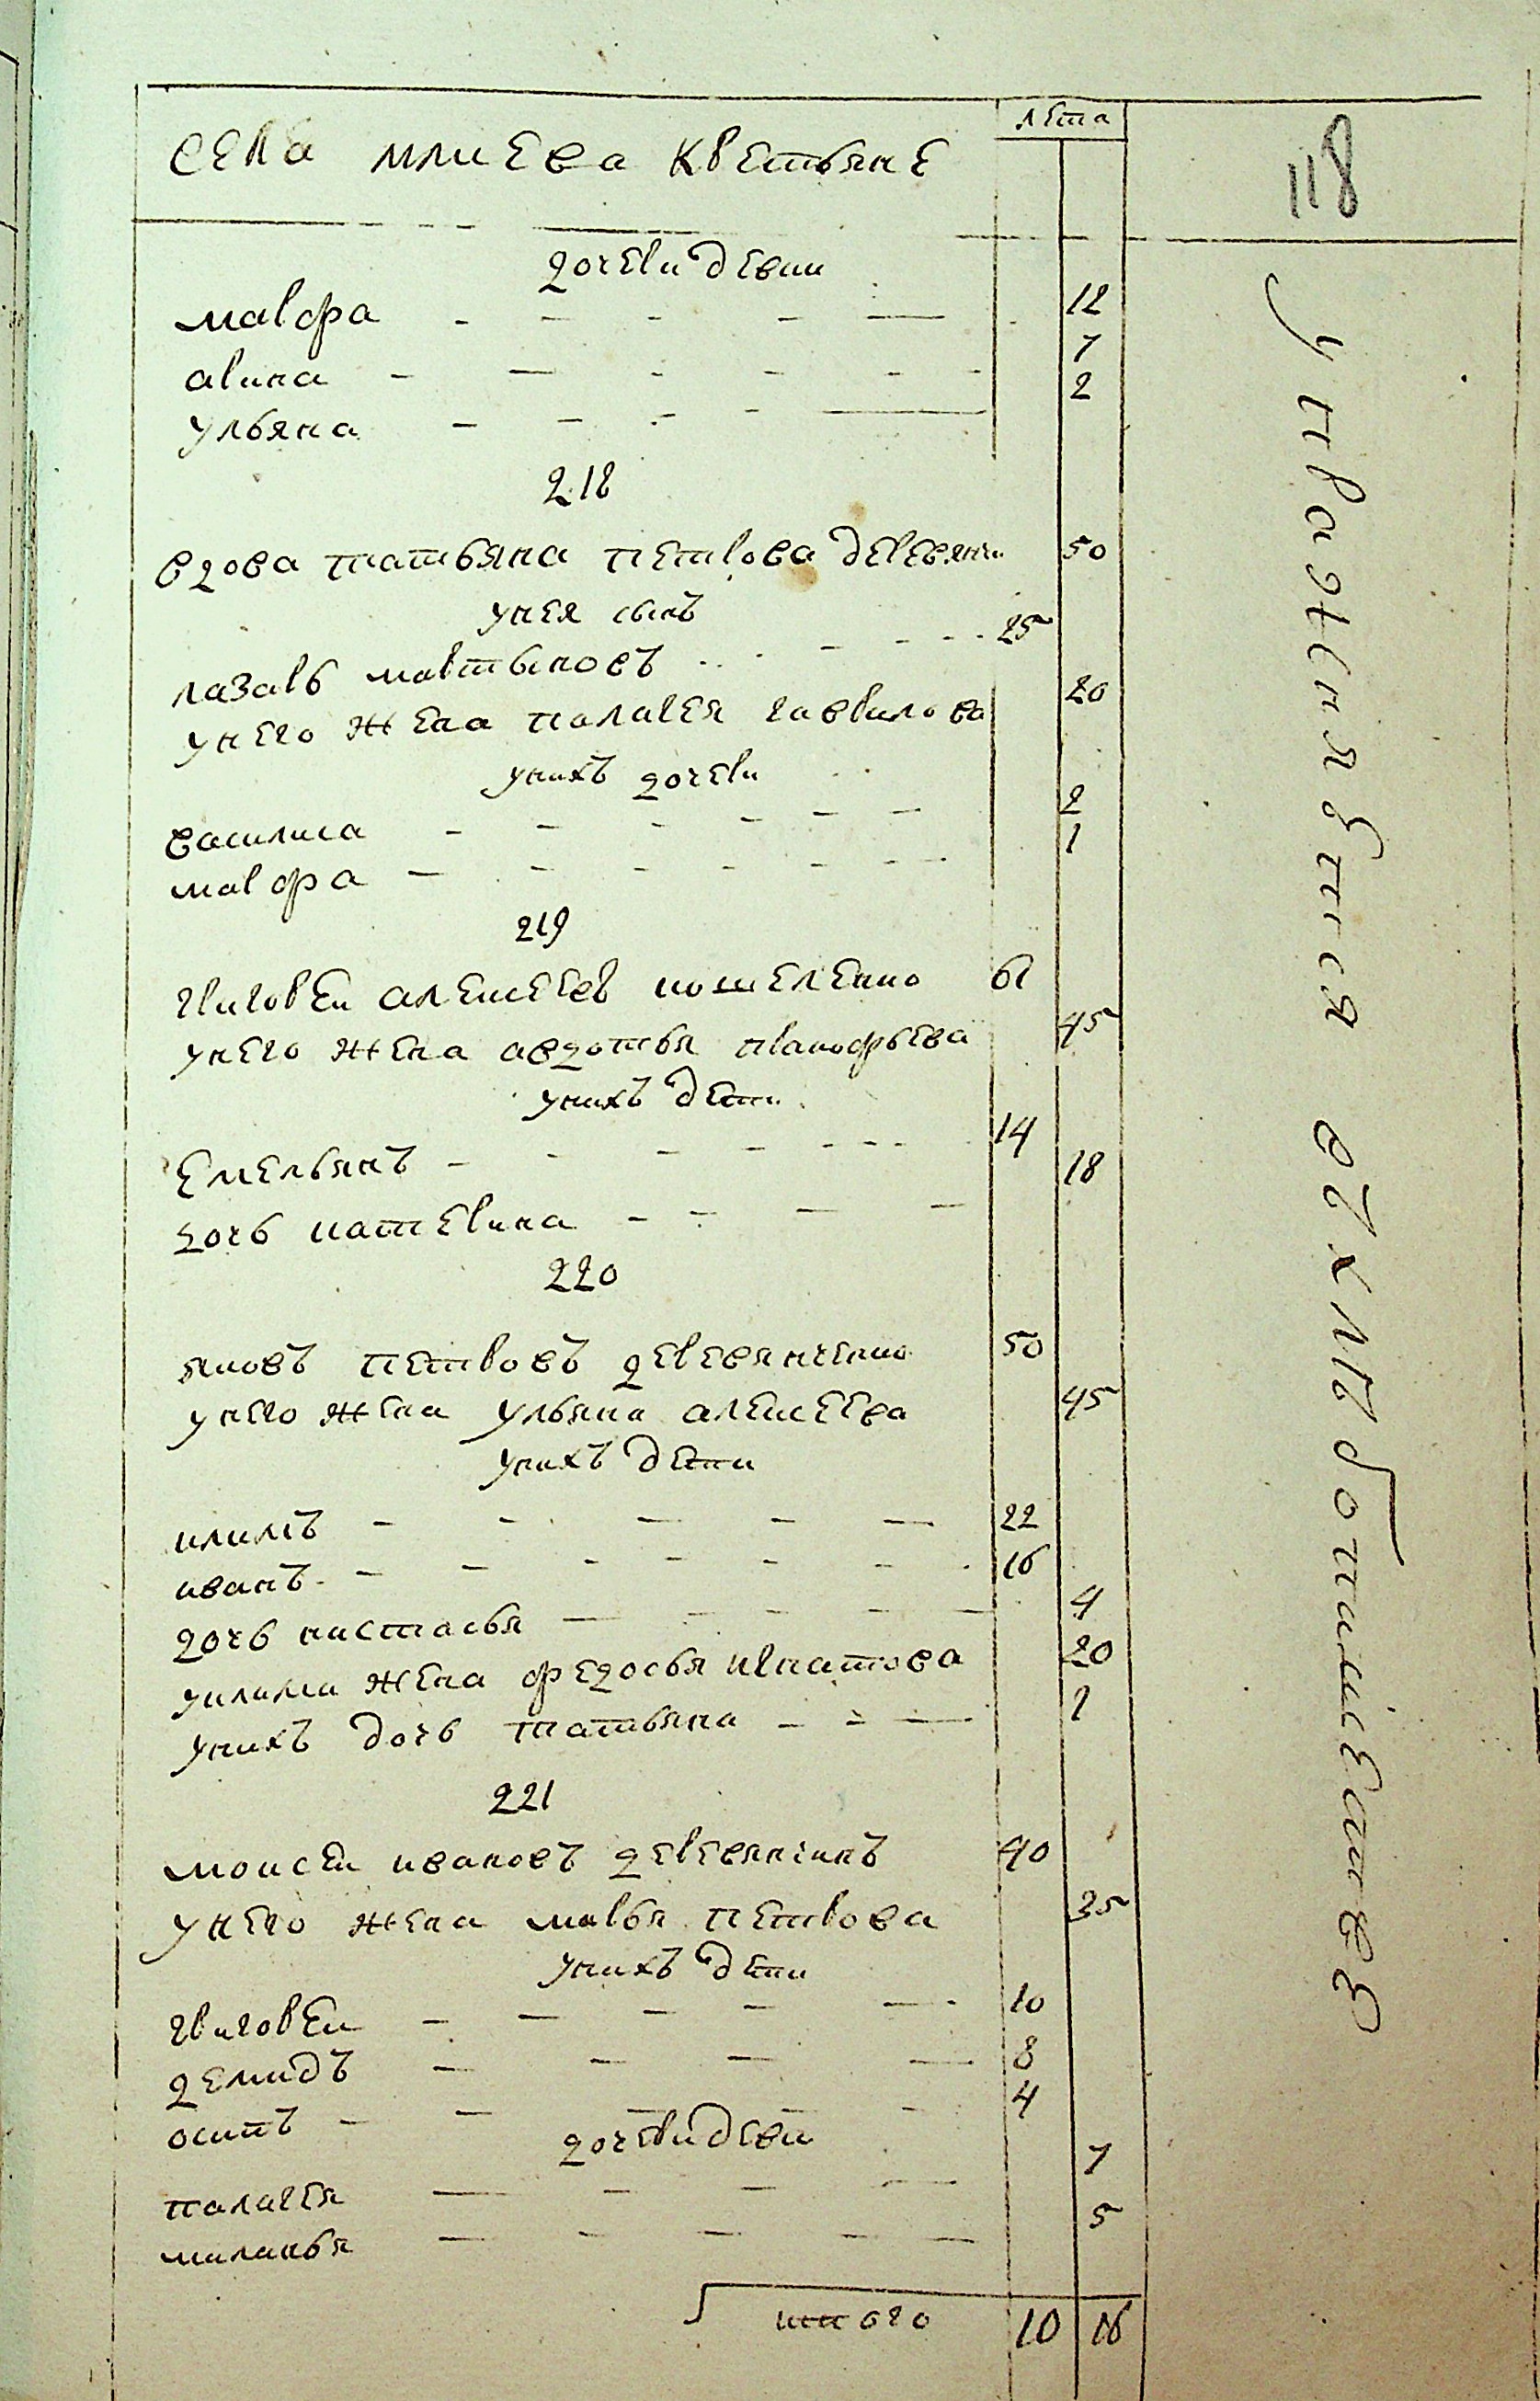 лета
села млиева крестьяне
118
дочери девки
марфа 12
арина 7
ульяна 2
218
вдова татьяна петрова 50
унея сынъ
лазарь мартыновъ 25
унего жена палагея гаврилова 20
унихъ дочери
василиса 2
марфа 1
219
григорей алексеевъ кошеленко 61
унего жена авдотья панофрьева 45
унихъ дети
Емельянъ 14
дочь катерина 18
220
яковъ петровъ деревянченко 50
унего жена ульяна алексеева 45
унихъ дети
климъ 22
иванъ 16
дочь настасья 4
уклима жена федосья игнатова 20
унихъ дочь татьяна 1
221
моисей ивановъ деревянчинъ 40
унего жена марья петрова 35
унихъ дети
григорей 10
демидъ 8
осипъ 4
дочери девки
палагея 7
маланья 5
итого 10 16
упражняется